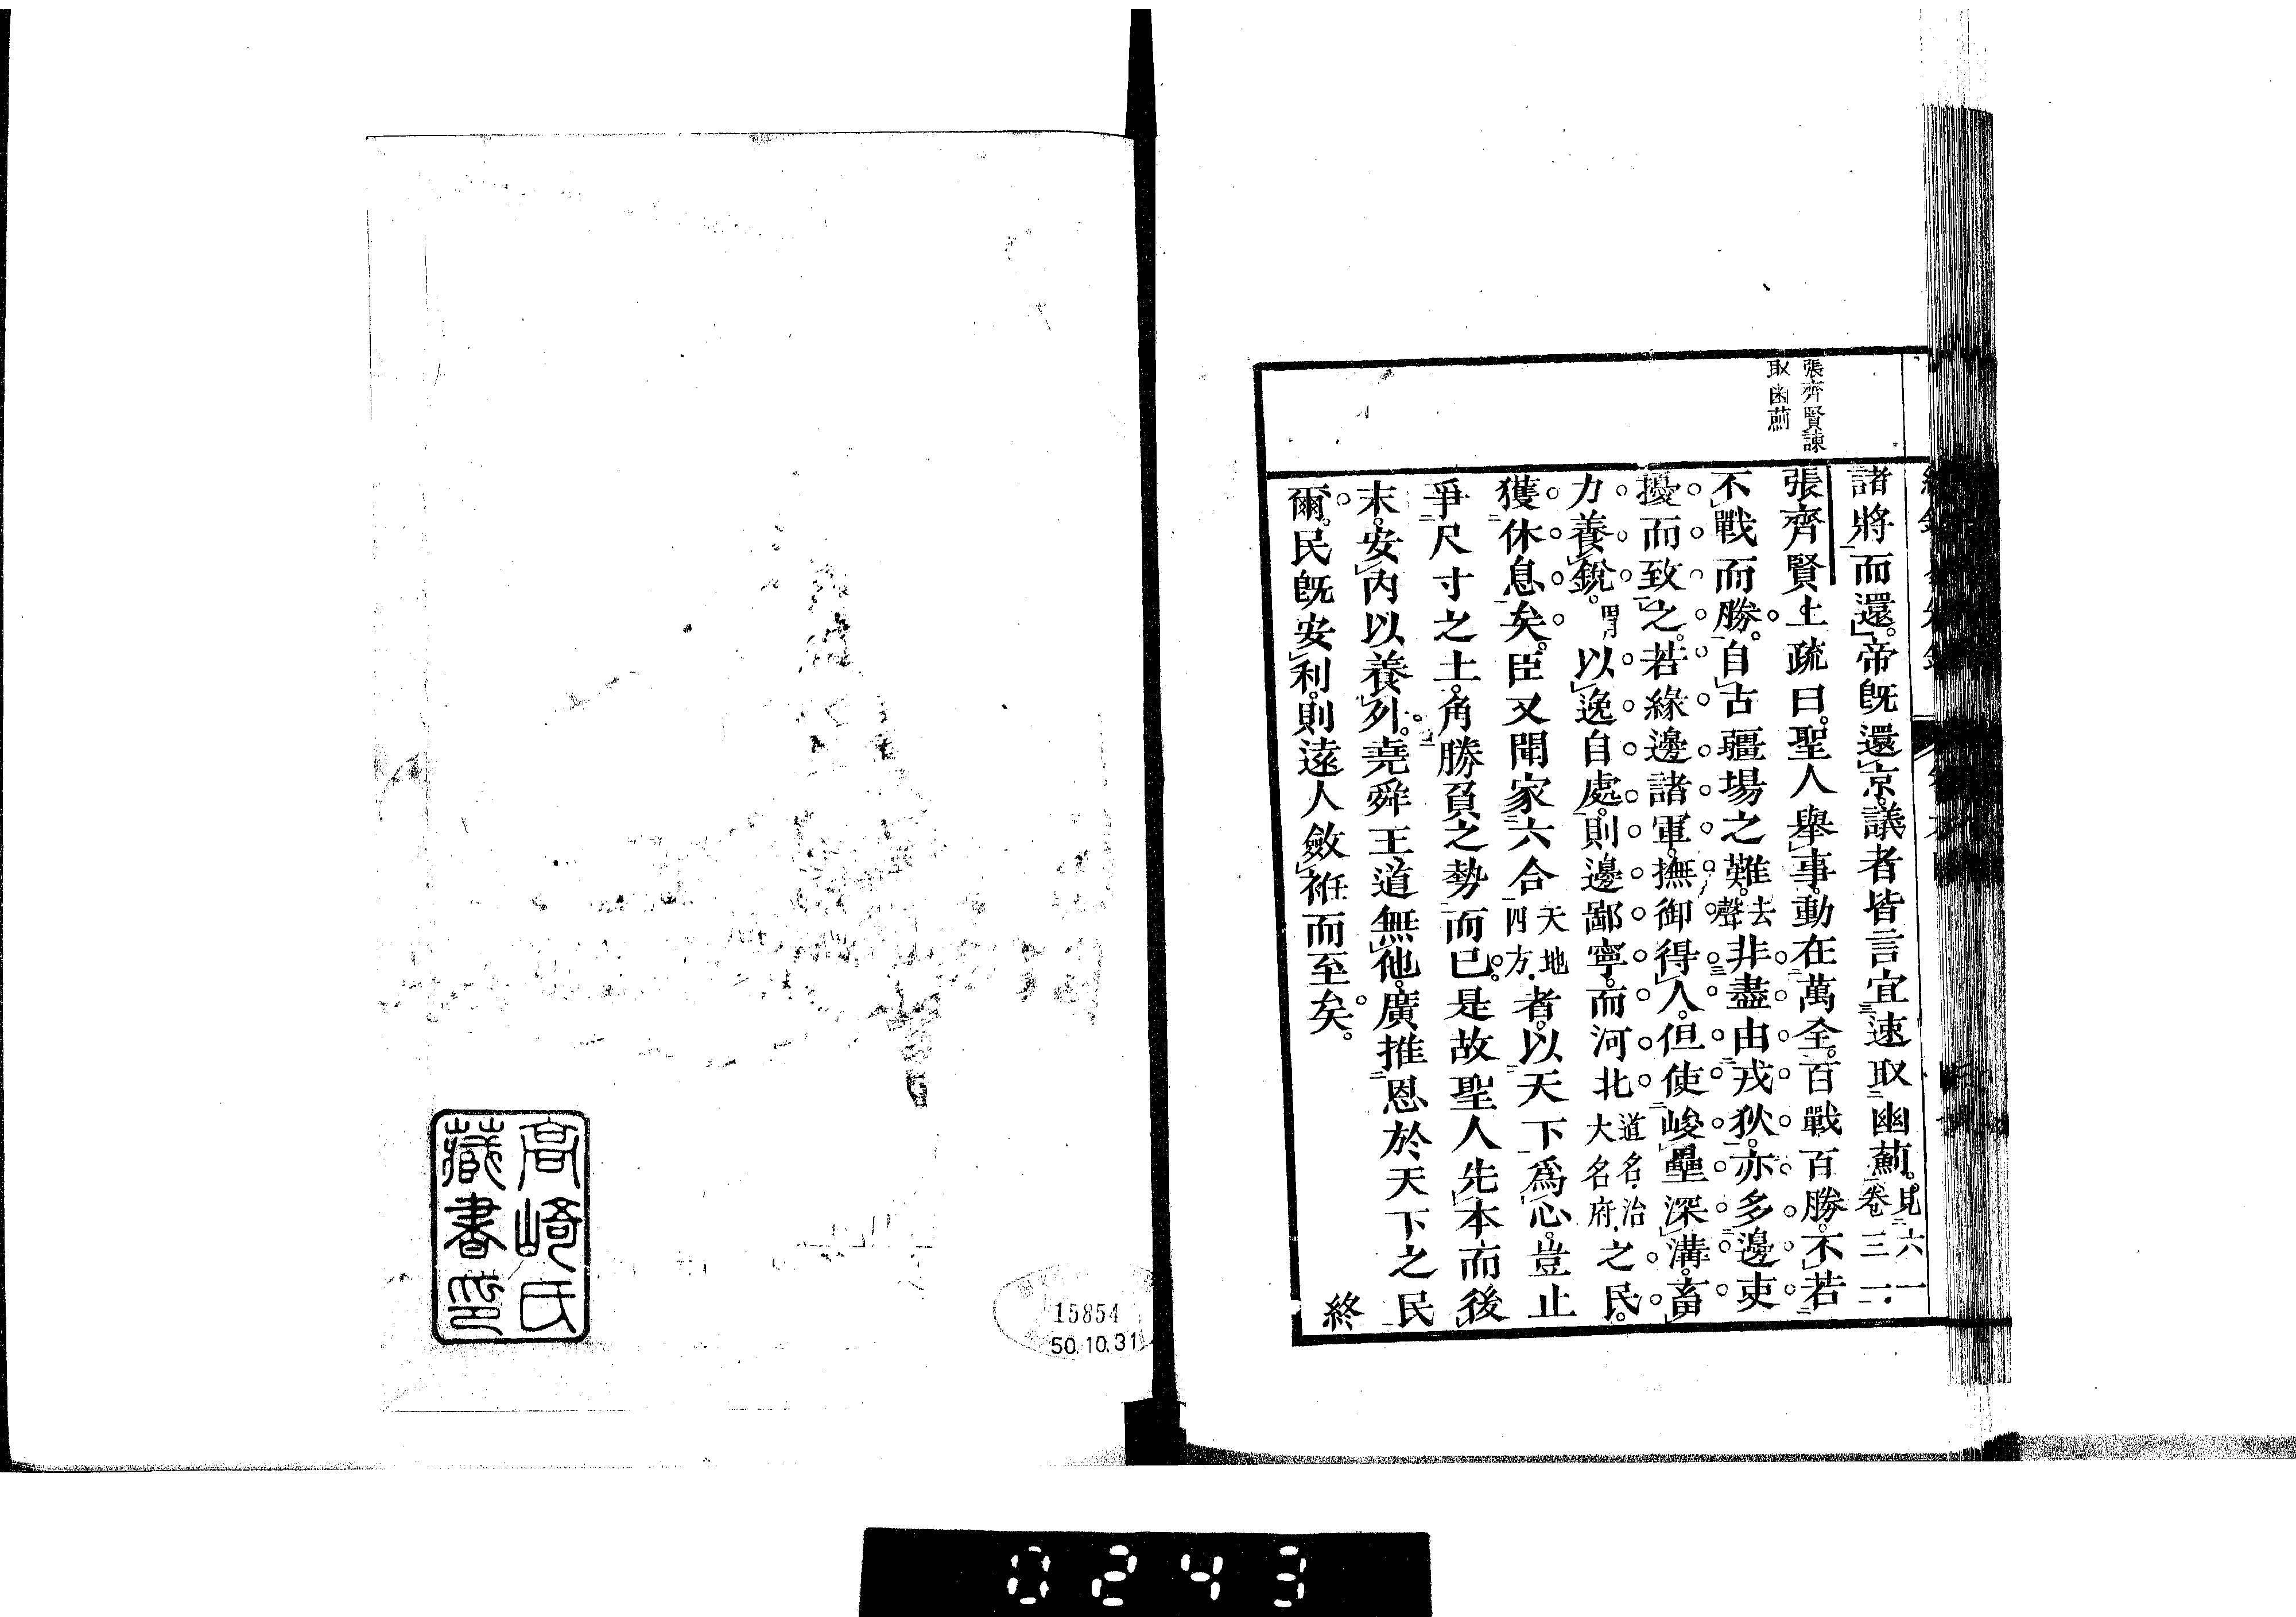 張齊賢諫
取幽薊
諸將而還。帝旣還京。議者皆言宜速取幽薊。見六卷三一一
張齊賢上疏曰。聖人擧事。動在萬全。百戰百勝。不若
不戰而勝。自古疆場之難。去聲非盡由戎狄。亦多邊吏
擾而致之。若緣邊諸軍。撫御得人。但使峻壘深溝。畜
力養銳。以逸自處。則邊鄙寧。而河北道名治大名府之民。
獲休息矣。臣又聞家六合天地四方者。以天下爲心。豈止
爭尺寸之土。角勝負之勢而已。是故聖人先本而後
末。安內以養外。堯舜王道無他。廣推恩於天下之民
爾。民旣安利。則遠人斂衽而至矣。
終
高崎氏
藏書印
15854
50.10.31
0243